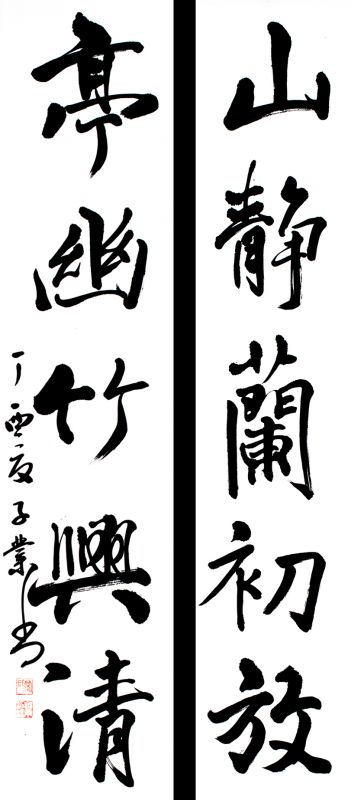 山静蘭初放
亭幽竹興清
丁酉夏子業書